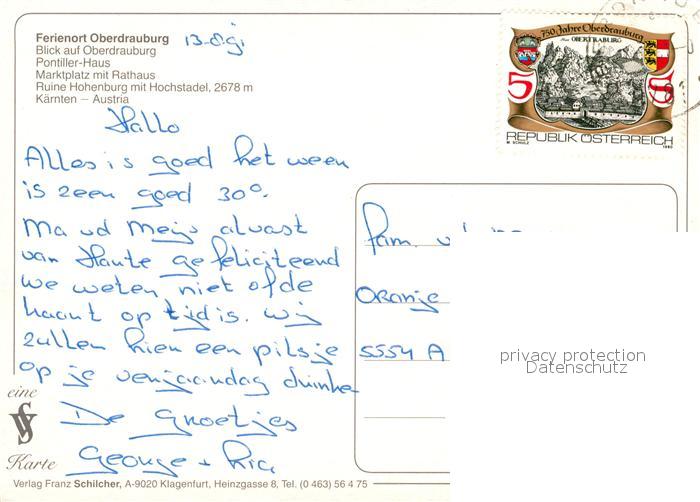 Ferienort Oberdrauburg 13-8-91
Blick auf Oberdrauburg
Pontiller-Haus
Marktplatz mit Rathaus
Ruine Hohenburg mit Hochstadel, 2678 m
Kärnten – Austria
Hallo
Alles is goed het weer
is zeer goed 30°.
Ma vd Meijs alvast
van Harte gefeliciteerd
we weten niet of de
kaart op tijd is. wij
zullen hier een pilsje
op je verjaardag drinke
De Groetjes
George + Ria
fam. v
Oranje
5554 A
750 Jahre Oberdrauburg
OBERTRABURG
5 S
REPUBLIK ÖSTERREICH
M. SCHULZ 1990
privacy protection
Datenschutz
eine
Karte
Verlag Franz Schilcher, A-9020 Klagenfurt, Heinzgasse 8, Tel. (0 463) 56 4 75